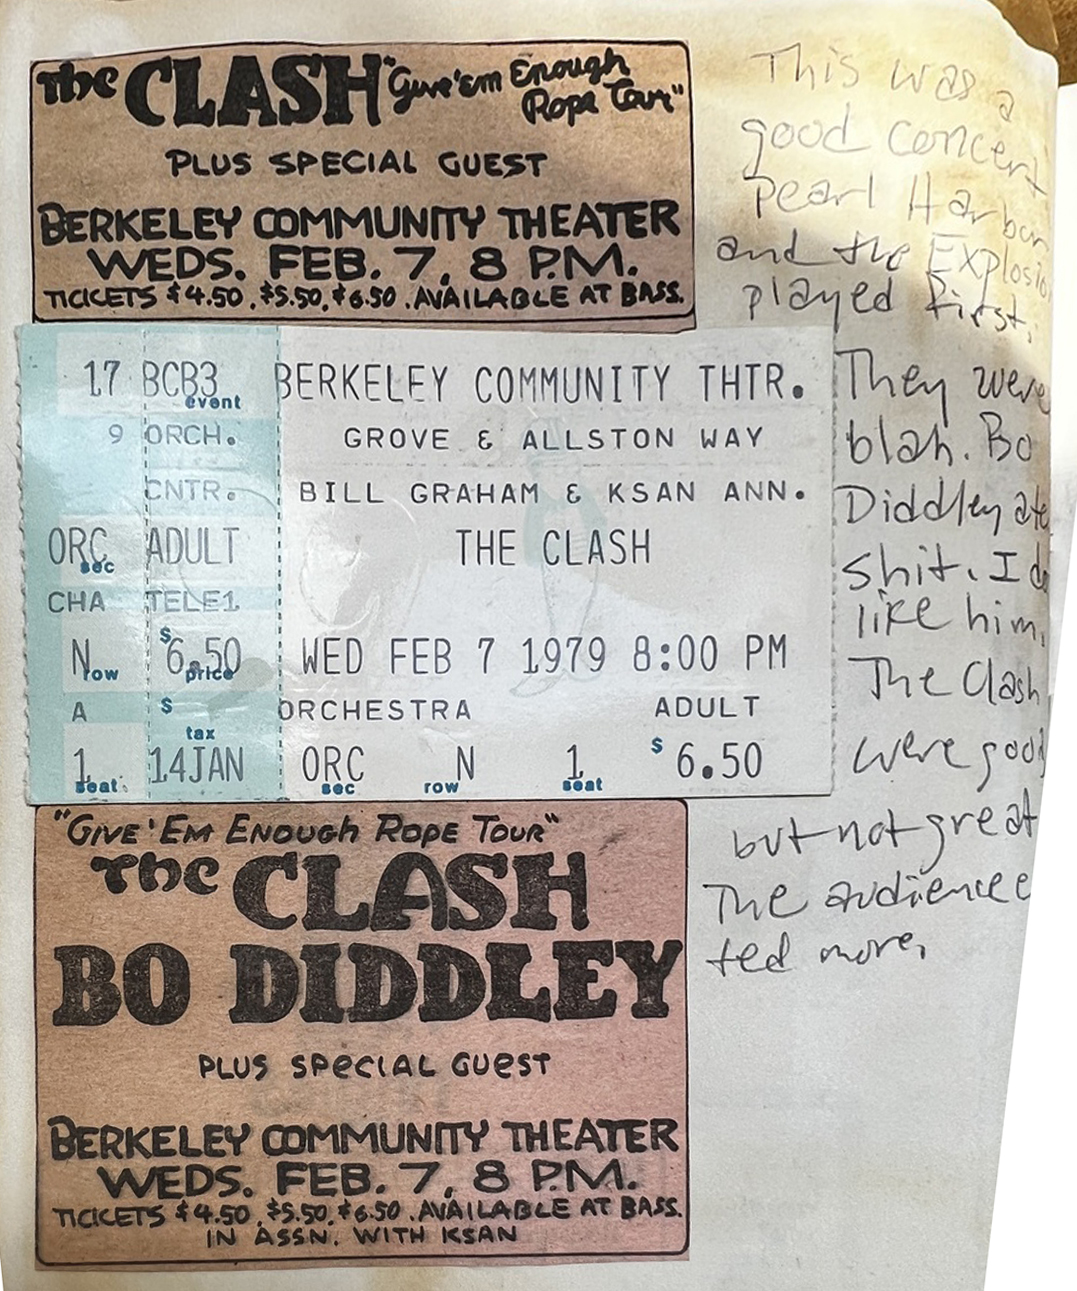 The CLASH "Give 'em Enough
Rope Tour"
PLUS SPECIAL GUEST
BERKELEY COMMUNITY THEATER
WEDS. FEB. 7, 8 P.M.
TICKETS $4.50, $5.50, $6.50. AVAILABLE AT BASS.
This was a
good concert
Pearl Harbor
and the Explosio
played first.
They were
blah. Bo
Diddley ate
shit. I do
like him.
The Clash
were good
but not great
The audience e
ted more.
17 BCB3 BERKELEY COMMUNITY THTR.
event
9 ORCH. GROVE & ALLSTON WAY
CNTR. BILL GRAHAM & KSAN ANN.
ORC ADULT THE CLASH
sec
CHA TELE1
N $6.50 WED FEB 7 1979 8:00 PM
row price
A $ ORCHESTRA ADULT
tax
1 14JAN ORC N 1 $6.50
seat sec row seat
"GIVE 'EM ENOUGH ROPE TOUR"
The CLASH
BO DIDDLEY
PLUS SPECIAL GUEST
BERKELEY COMMUNITY THEATER
WEDS. FEB. 7, 8 P.M.
TICKETS $4.50, $5.50, $6.50. AVAILABLE AT BASS.
IN ASSN. WITH KSAN